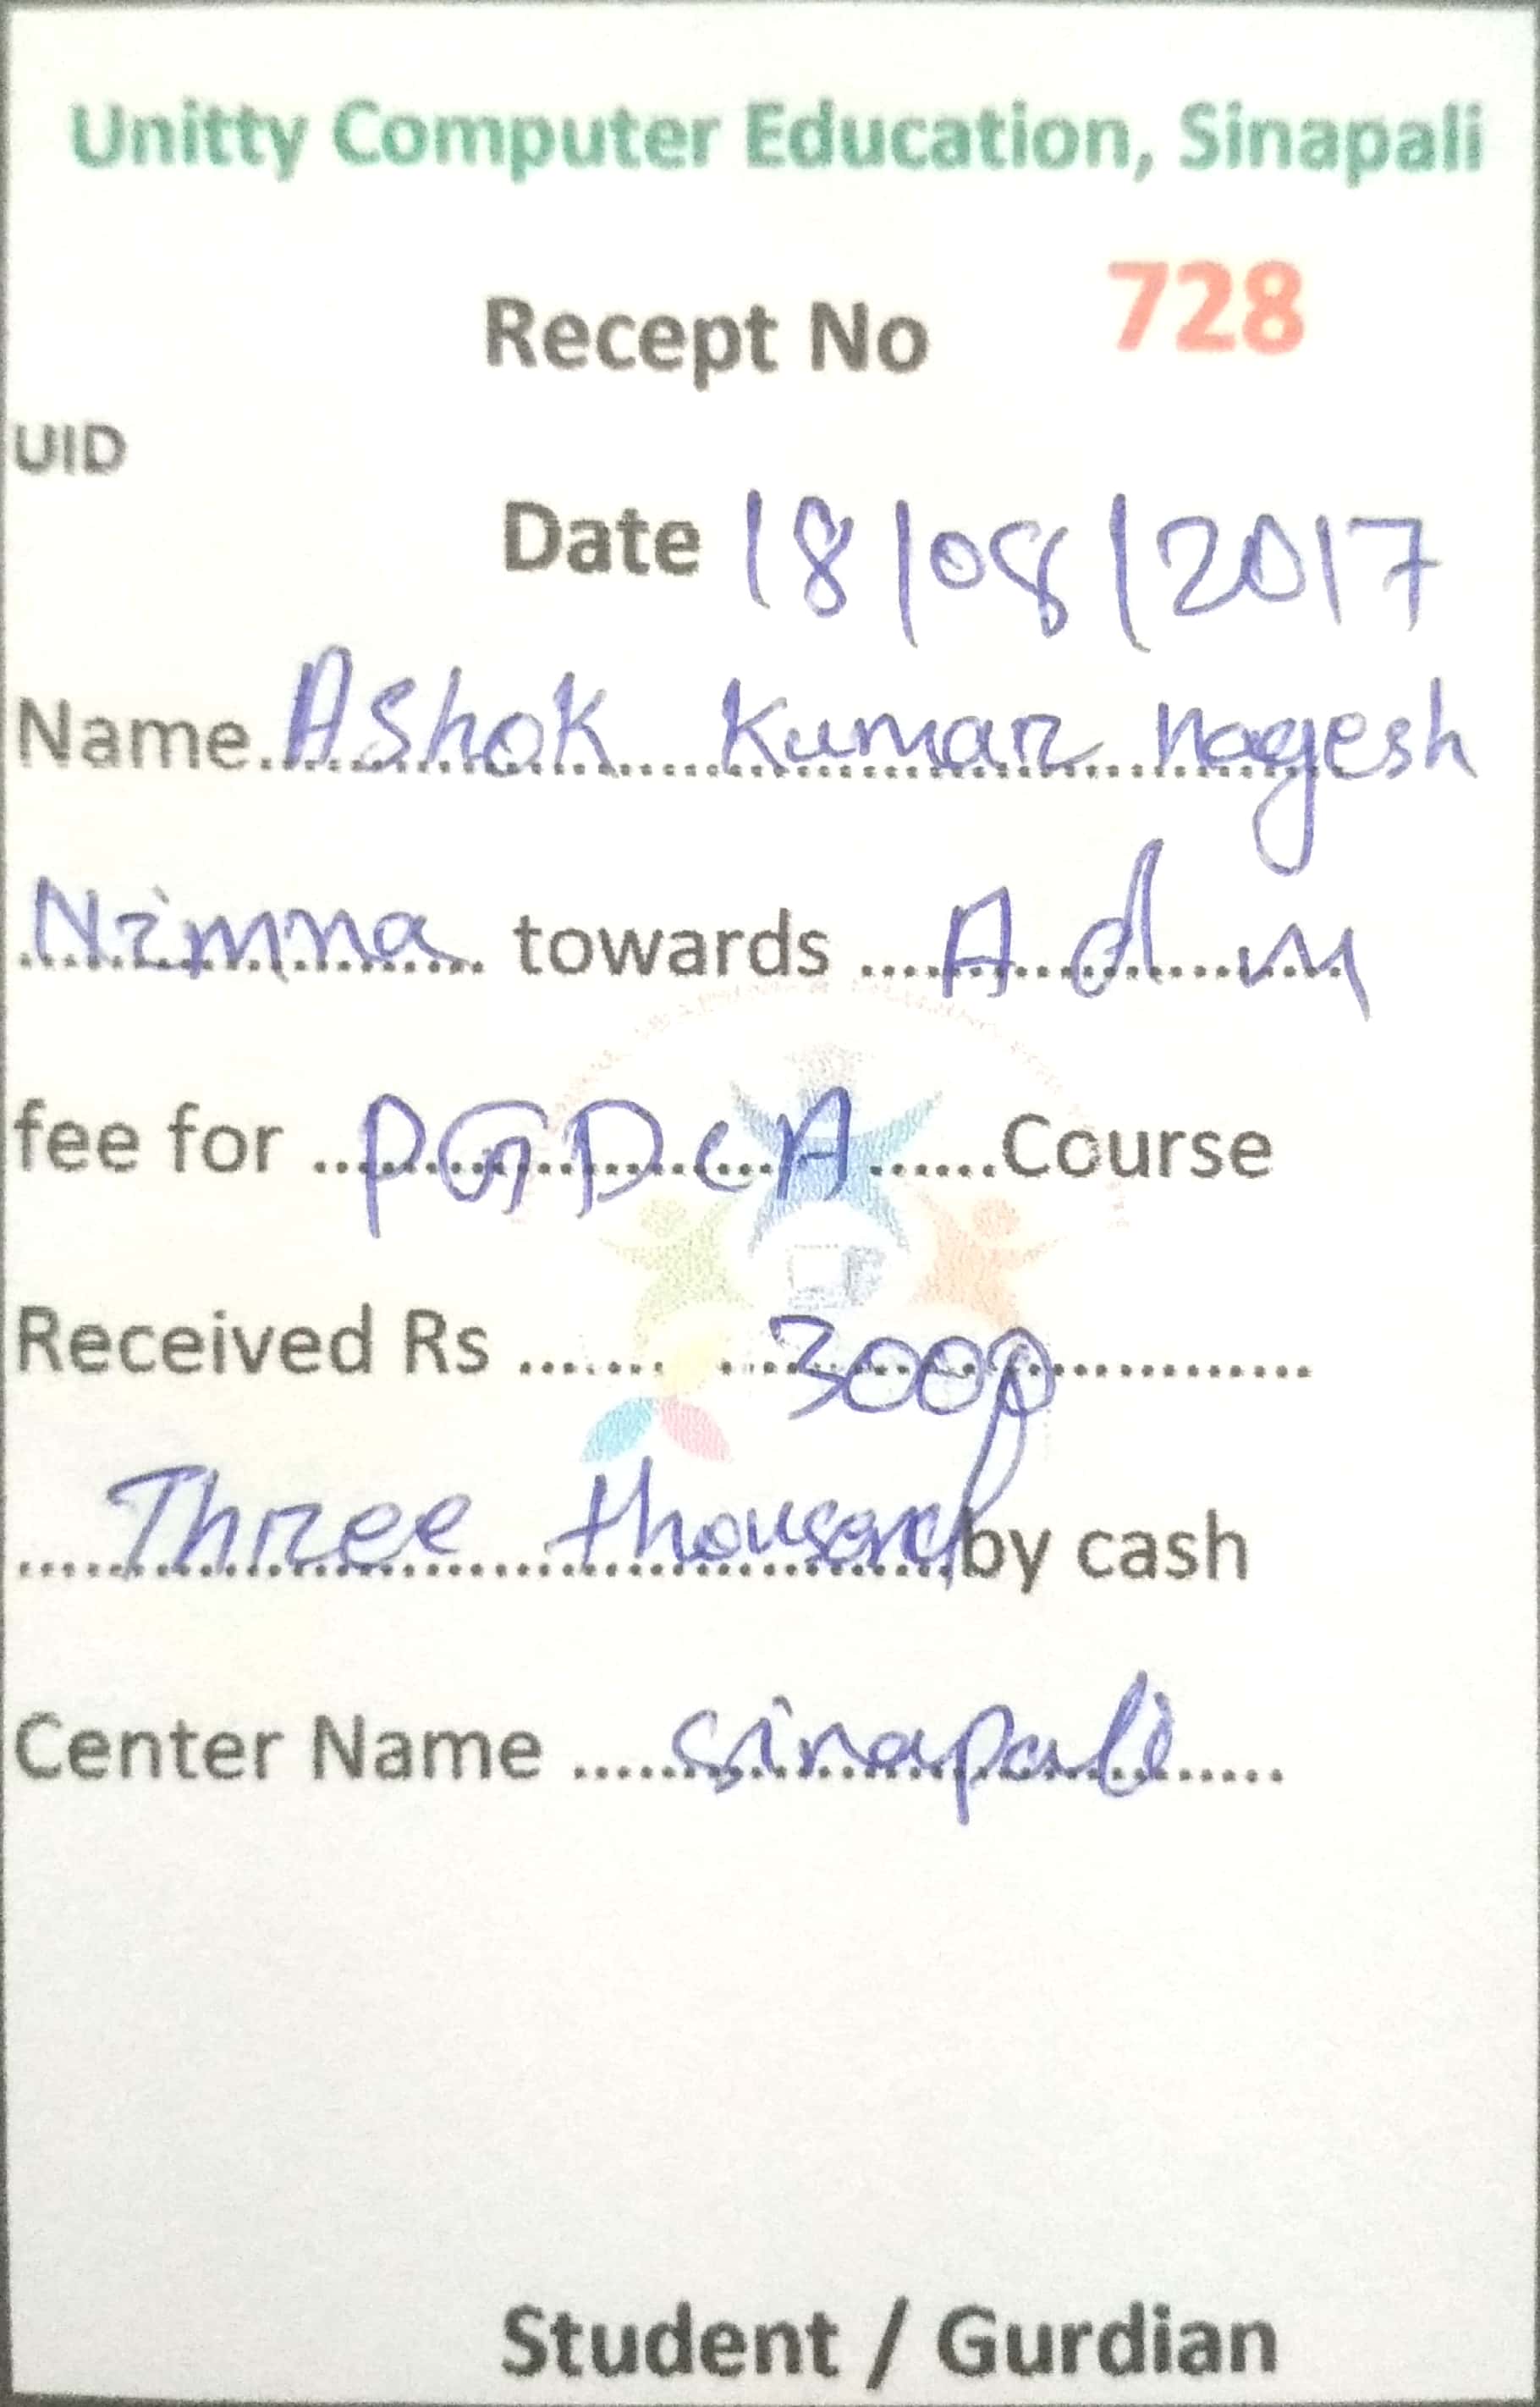 Unitty Computer Education, Sinapali
Recept No 728
UID
Date 18/08/2017
Name..Ashok Kumar nagesh
Nimna towards ....Adm
fee for ...PGDCA......Course
Received Rs ....... 3000
....Three thousand by cash
Center Name .....sinapali.....
Student / Gurdian